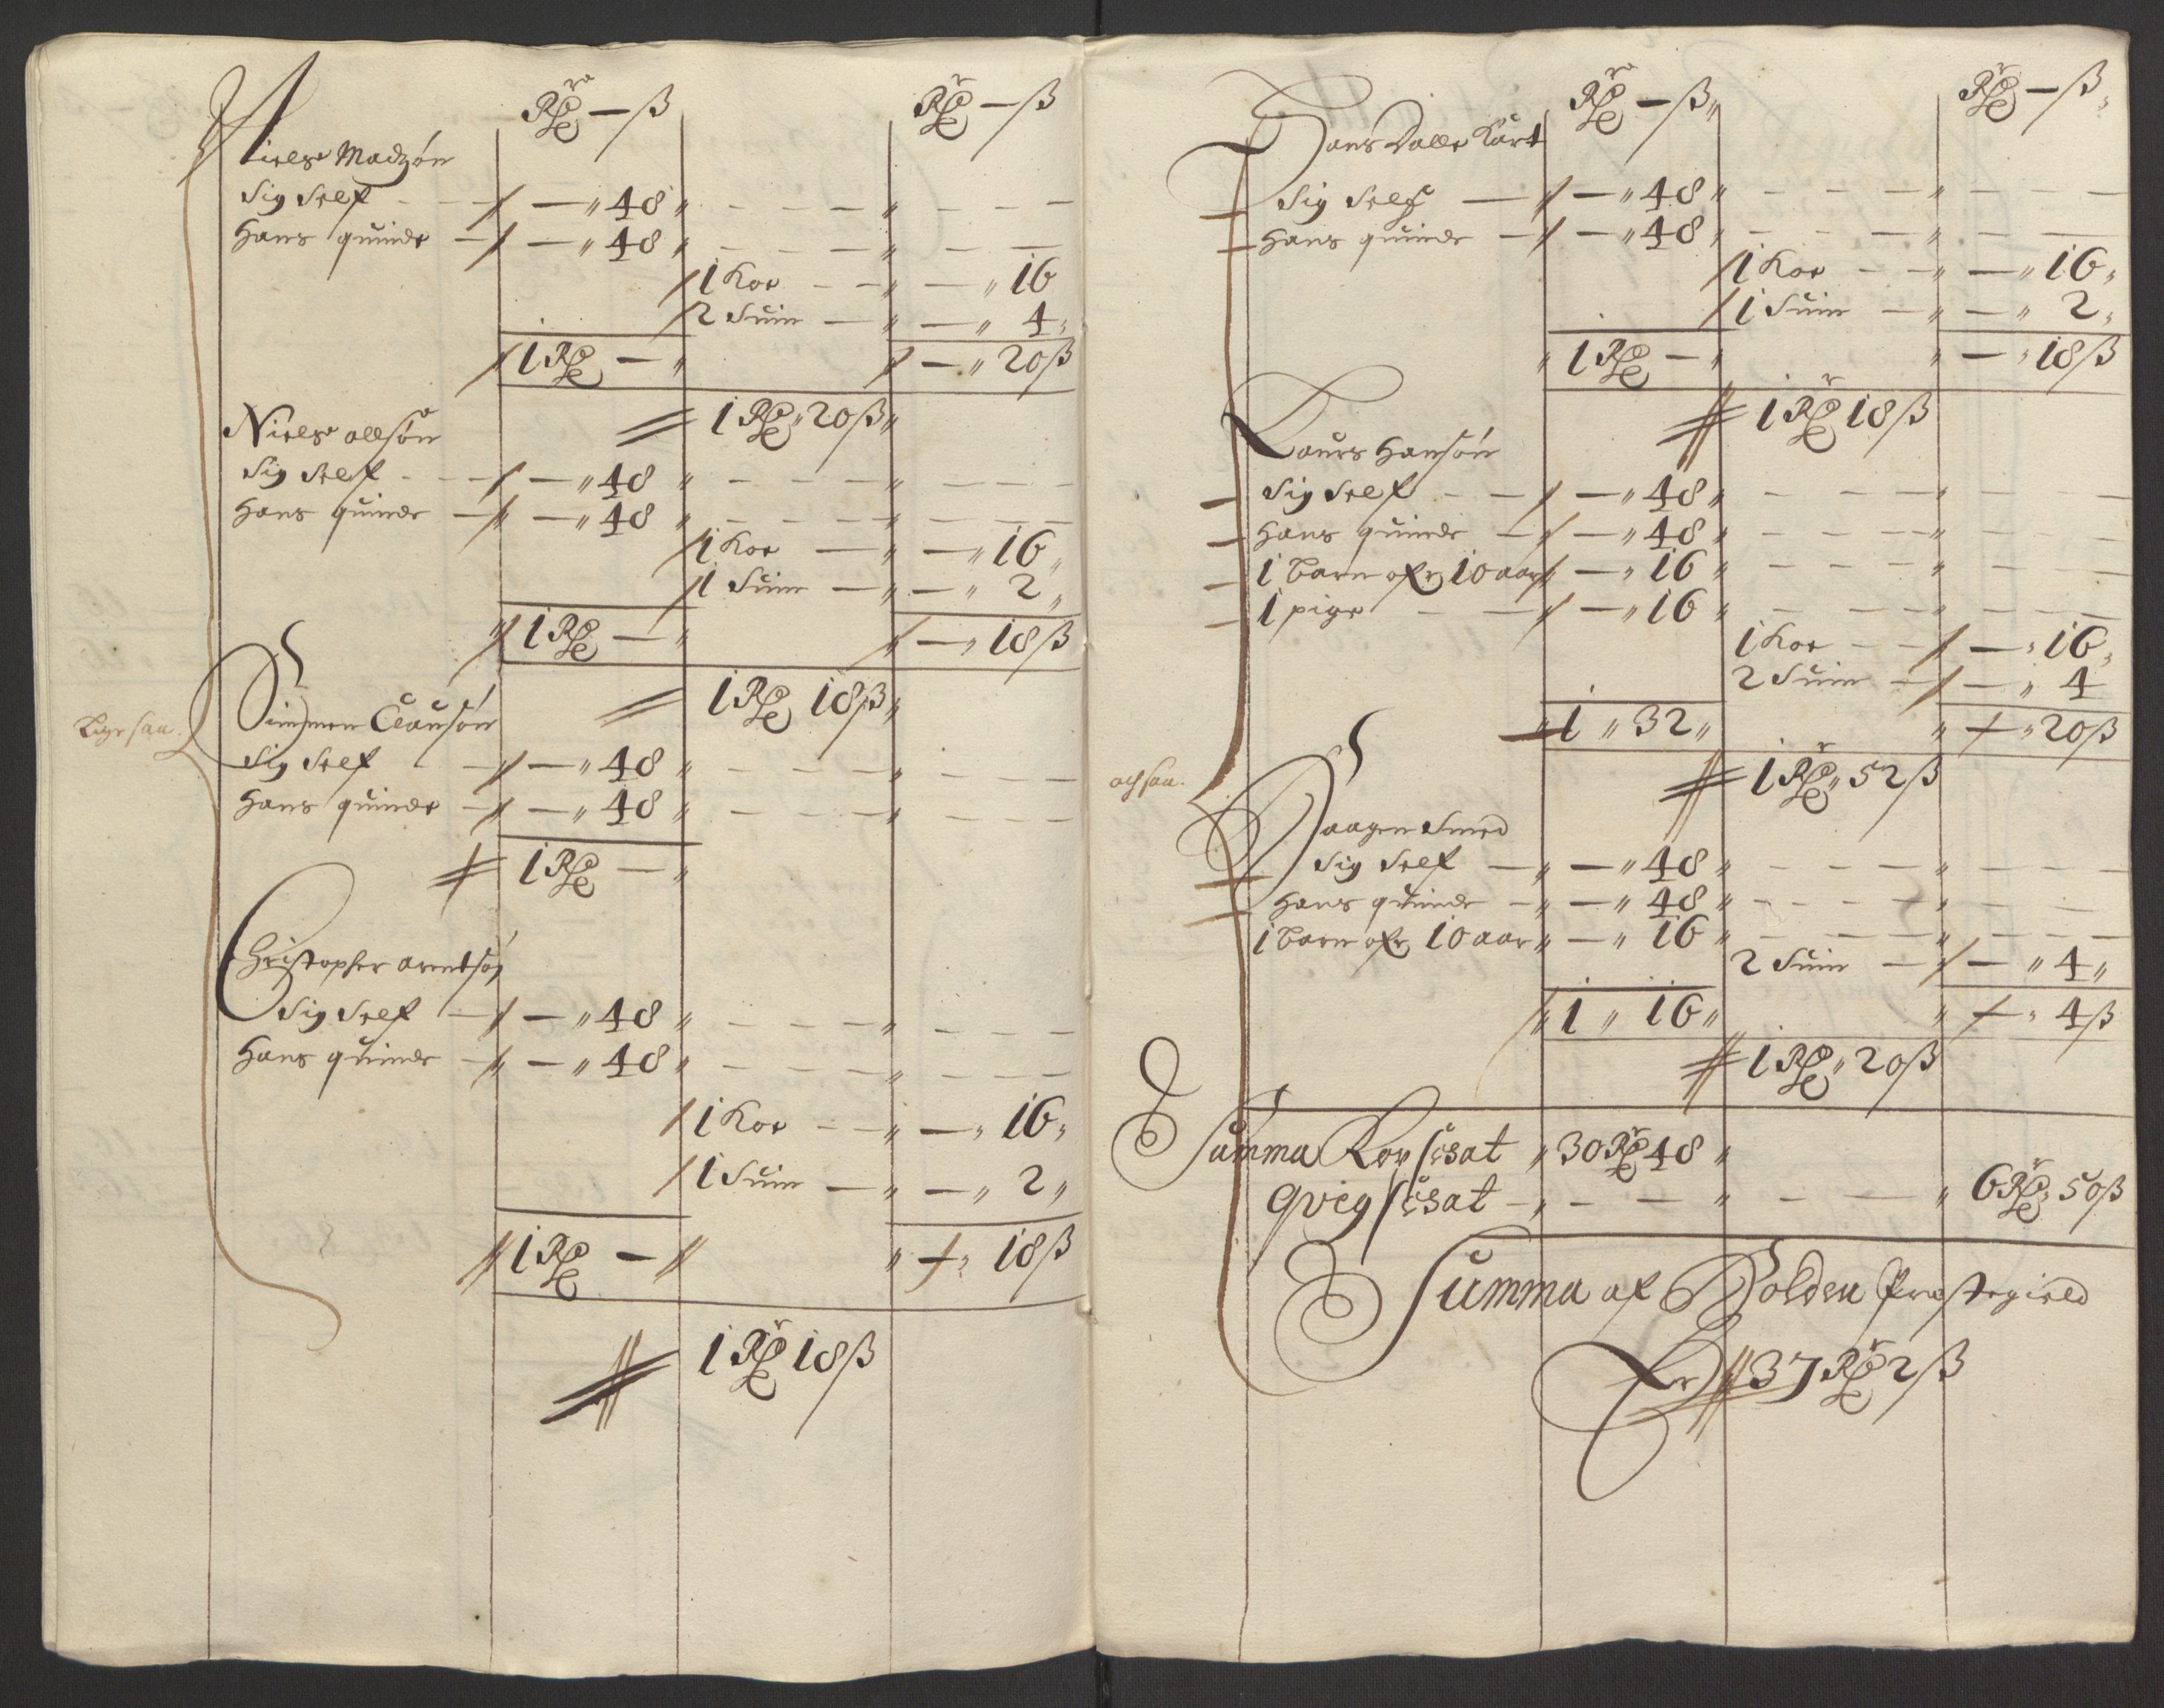 Rdr — ß
Rdr — ß
Nielse Madzøn
Sig Self — — „ 48 „
Hans quinde — — „ 48 „
1 Koe — — „ 16
2 Suin — — „ 4 „
1 Rd — „ — „ 20 ß
1 Rd „ 20 ß „
Nielse ollsøn
Sig Self — — „ 48 „
Hans quinde — — „ 48 „
1 Koe — — „ 16 „
1 Suin — — „ 2 „
1 Rd — „ — „ 18 ß
1 Rd 18 ß „
Simmen Clausøn
Sig Self — — „ 48 „
Hans quinde — — „ 48 „
1 Rd — „
Christopher arentsøn
Sig Self — — „ 48 „
Hans quinde — — „ 48 „
1 Koe — — „ 16 „
1 Suin — — „ 2 „
1 Rd — „ — „ 18 ß
1 Rdr 18 ß
Rdr — ß „
Rdr — ß „
Hans Kart
Sig Self — — „ 48 „
Hans quinde — — „ 48 „
1 Koe — — „ 16 „
1 Suin — — „ 2 „
1 Rd — „ — „ 18 ß
1 Rdr 18 ß
Laurs Hansøn
Sig Self — — „ 48 „
Hans quinde — — „ 48 „
1 Barn ofr 10 aar — „ 16 „
1 pige — — „ 16 „
1 Koe — — „ 16 „
2 Suin — — „ 4
1 „ 32 „ — „ 20 ß
1 Rdr „ 52 ß
Haagen Smed
Sig Self — — „ 48 „
Hans quinde — — „ 48 „
1 Barn ofr 10 aar „ — „ 16 „
2 Suin — — „ 4 „
1 „ 16 „ — „ 4 ß
1 Rd „ 20 ß
Summa Kop skat „ 30 Rdr 48 „
Qveg skat — „ 6 Rdr „ 50 ß
Summa af Præstegield
Er 37 Rdr 2 ß